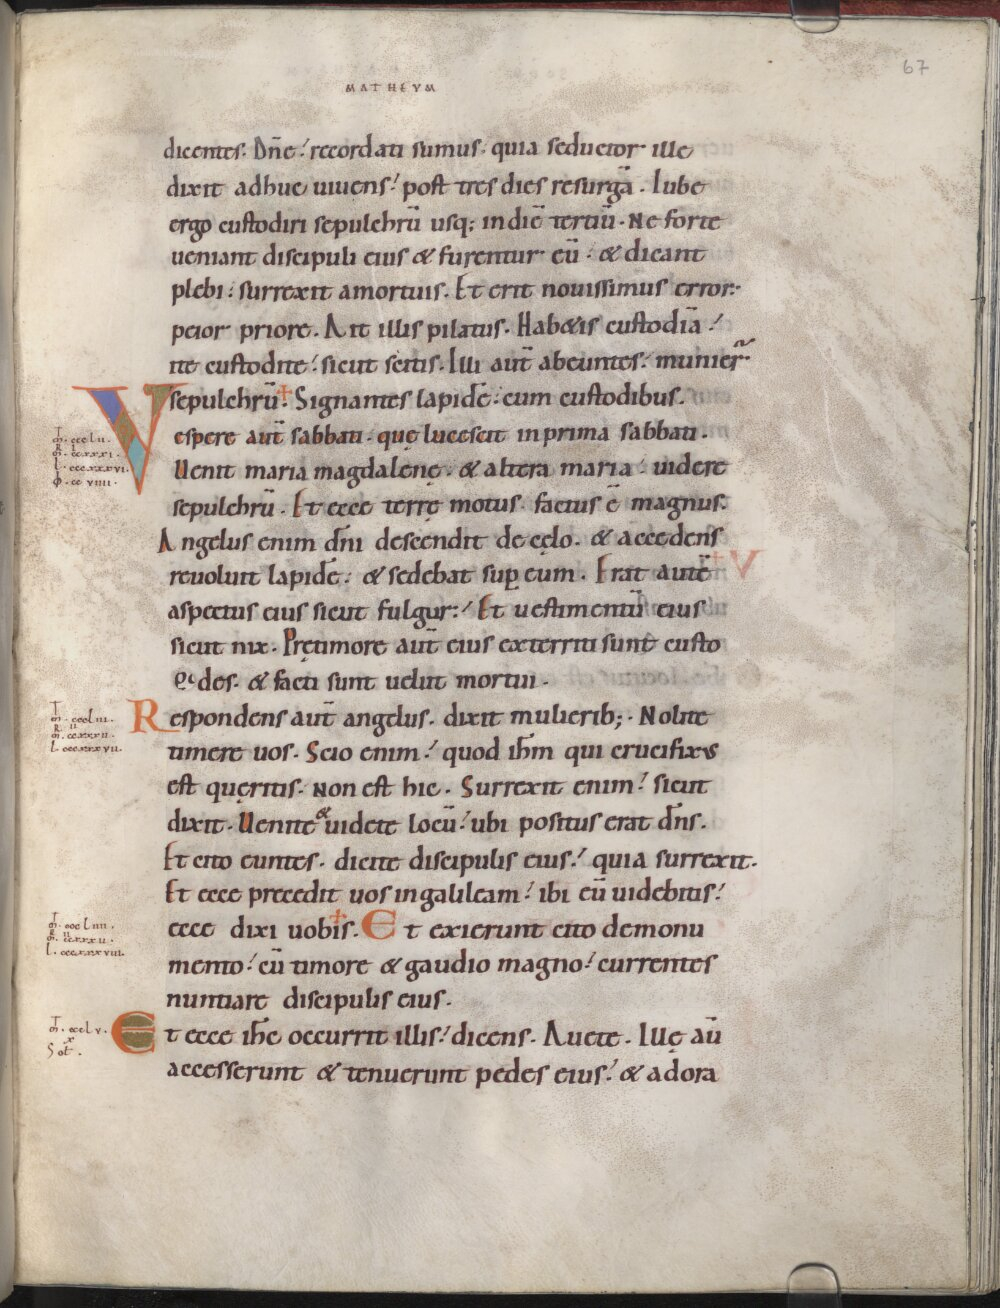 67
MATHEVM
dicentes. Dñe! recordati sumus. quia seductor ille
dixit adhuc uiuens! post tres dies resurgā. Iube
ergo custodiri sepulchrū usq; in diē tertiū. Ne forte
ueniant discipuli eius & furentur eū. & dicant
plebi: surrexit amortuis. Et erit nouissimus error:
peior priore. Ait illis pilatus. Habetis custodiā!
ite custodite! sicut scitis. Illi aut̄ abeuntes! munier̄
sepulchrū. Signantes lapidē: cum custodibus.
Vespere aut̄ sabbati. quę lucescit inprima sabbati.
Uenit maria magdalęnę. & altera maria. uidere
sepulchrū. Et ecce terrę motus. factus ē magnus.
Angelus enim dñi descendit de cęlo. & accedens
reuoluit lapidē: & sedebat sup eum. Erat autē
aspectus eius sicut fulgur:! Et uestimentū eius
sicut nix. Prętimore aut̄ eius exterriti sunt custo
des. & facti sunt uelut mortui.
Respondens aut̄ angelus. dixit mulierib;. Nolite
timere uos. Scio enim! quod ihm qui crucifixus
est quęritis. Non est hic. Surrexit enim! sicut
dixit. Uenite & uidete locū! ubi positus erat dñs.
Et cito euntes. dicite discipulis eius! quia surrexit.
Et ecce precedit uos in galileam! ibi eū uidebitis!
ecce dixi uobis. Et exierunt cito demonu
mento! cū timore & gaudio magno! currentes
nuntiare discipulis eius.
Et ecce ihc occurrit illis! dicens. Auete. Illę aū
accesserunt & tenuerunt pedes eius! & adora